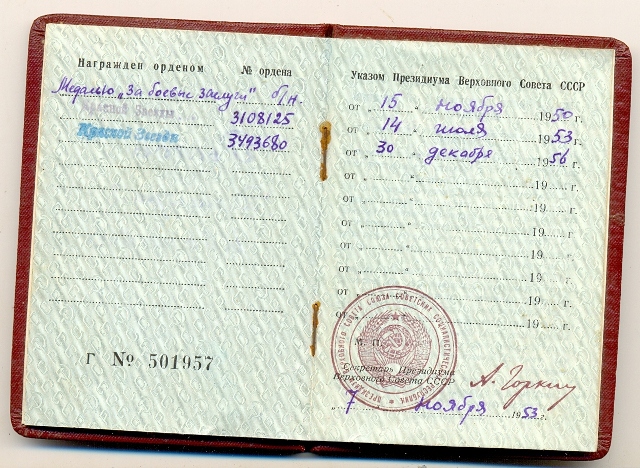 Награжден орденом № ордена
Медалью „За боевые заслуги" б/н.
Красной Звезды 3108125
Красной Звезды 3493680
Г № 501957
Указом Президиума Верховного Совета СССР
от „ 15 " ноября 1950 г.
от „ 14 " июля 1953 г.
от „ 30 " декабря 1956 г.
от „ " 19 г.
от „ " 19 г.
от „ " 19 г.
от „ " 19 г.
от „ " 19 г.
от „ " 19 г.
от „ " 19 г.
М. П.
Секретарь Президиума
Верховного Совета СССР
А. Горкин
„ 7 " ноября 1953 г.